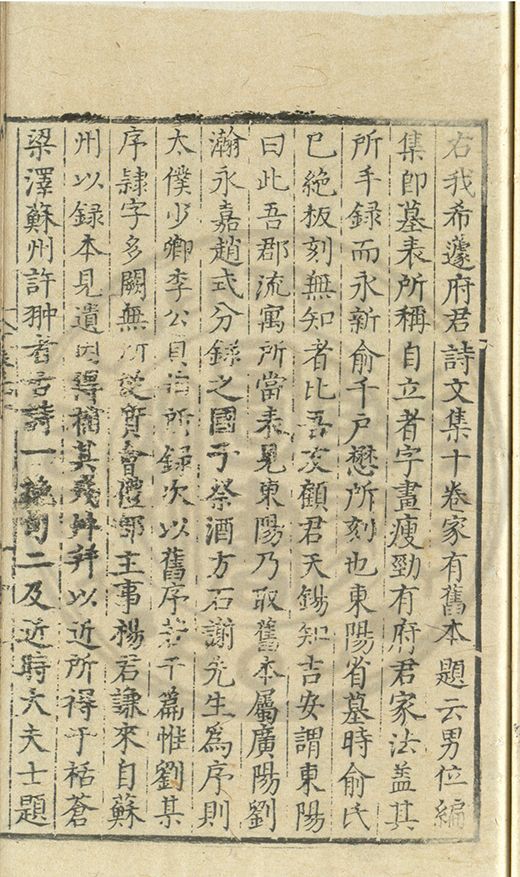 右我希蘧府君詩文集十卷家有舊本題云男位編
集即墓表所稱自立者字畫瘦勁有府君家法盖其
所手録而永新俞千戶懋所刻也東陽省墓時俞氏
已絶板刻無知者比吾友顧君天錫知吉安謂東陽
曰此吾郡流寓所當表見東陽乃取舊本屬廣陽劉
瀚永嘉趙式分録之國子祭酒方石謝先生為序則
太僕少卿李公貞伯所録次以舊序若干篇惟劉某
序隷字多闕無所從質會禮部主事楊君謙來自蘇
州以録本見遺因得補其并以近所得于栝蒼
梁澤蘇州許翀者古詩一絶句二及近時大夫士題